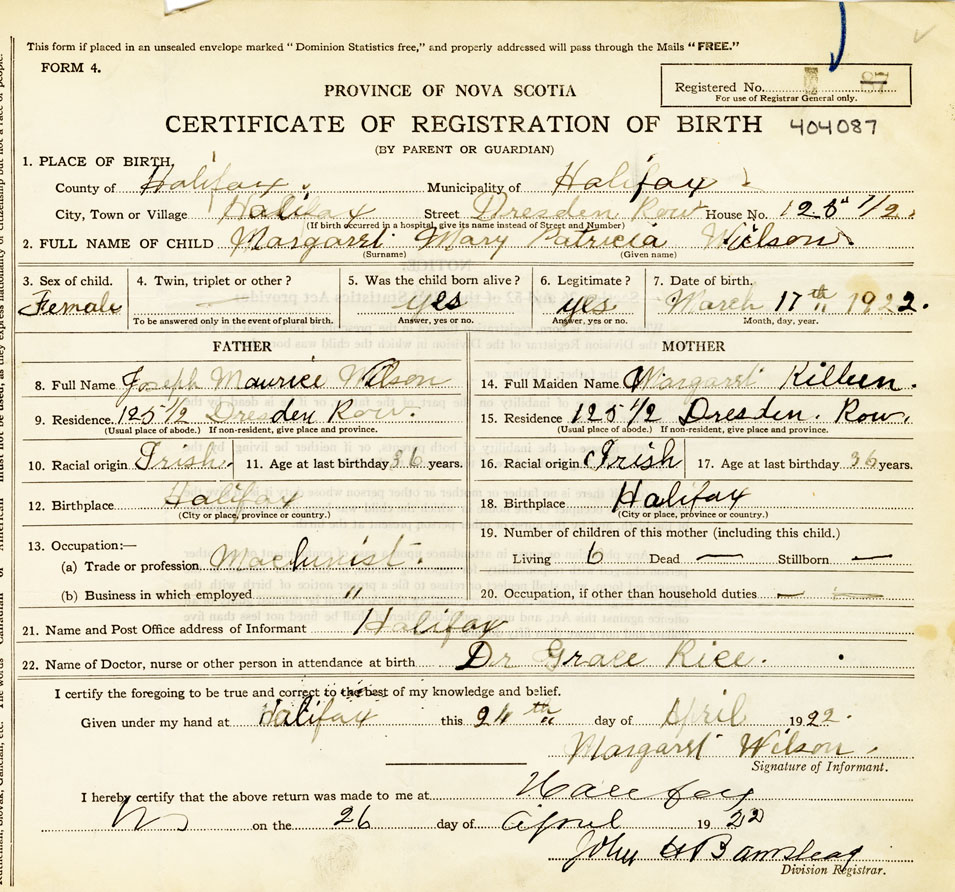 This form if placed in an unsealed envelope marked "Dominion Statistics free," and properly addressed will pass through the Mails "FREE."
FORM 4.
Registered No.
For use of Registrar General only.
PROVINCE OF NOVA SCOTIA
CERTIFICATE OF REGISTRATION OF BIRTH 404087
(BY PARENT OR GUARDIAN)
1. PLACE OF BIRTH,
County of Halifax Municipality of Halifax
City, Town or Village Halifax Street Dresden Row House No. 125 1/2.
(If birth occurred in a hospital, give its name instead of Street and Number)
2. FULL NAME OF CHILD Margaret Mary Patricia Wilson
(Surname) (Given name)
3. Sex of child. 4. Twin, triplet or other? 5. Was the child born alive? 6. Legitimate? 7. Date of birth.
Female — yes yes March 17th 1922.
To be answered only in the event of plural birth. Answer, yes or no. Answer, yes or no. Month, day, year.
FATHER MOTHER
8. Full Name Joseph Maurice Wilson 14. Full Maiden Name Margaret Killeen.
9. Residence 125 1/2 Dresden Row. 15. Residence 125 1/2 Dresden. Row.
(Usual place of abode.) If non-resident, give place and province. (Usual place of abode.) If non-resident, give place and province.
10. Racial origin Irish. 11. Age at last birthday 36 years. 16. Racial origin Irish 17. Age at last birthday 36 years.
12. Birthplace Halifax 18. Birthplace Halifax
(City or place, province or country.) (City or place, province or country.)
13. Occupation:— 19. Number of children of this mother (including this child.)
(a) Trade or profession Machinist. Living 6 Dead — Stillborn —
(b) Business in which employed " 20. Occupation, if other than household duties — —
21. Name and Post Office address of Informant Halifax
22. Name of Doctor, nurse or other person in attendance at birth Dr Grace Rice.
I certify the foregoing to be true and correct to the best of my knowledge and belief.
Given under my hand at Halifax this 24th day of April 1922.
Margaret Wilson
Signature of Informant.
I hereby certify that the above return was made to me at Halifax
NS on the 26 day of April 1922
John H Barnstead
Division Registrar.